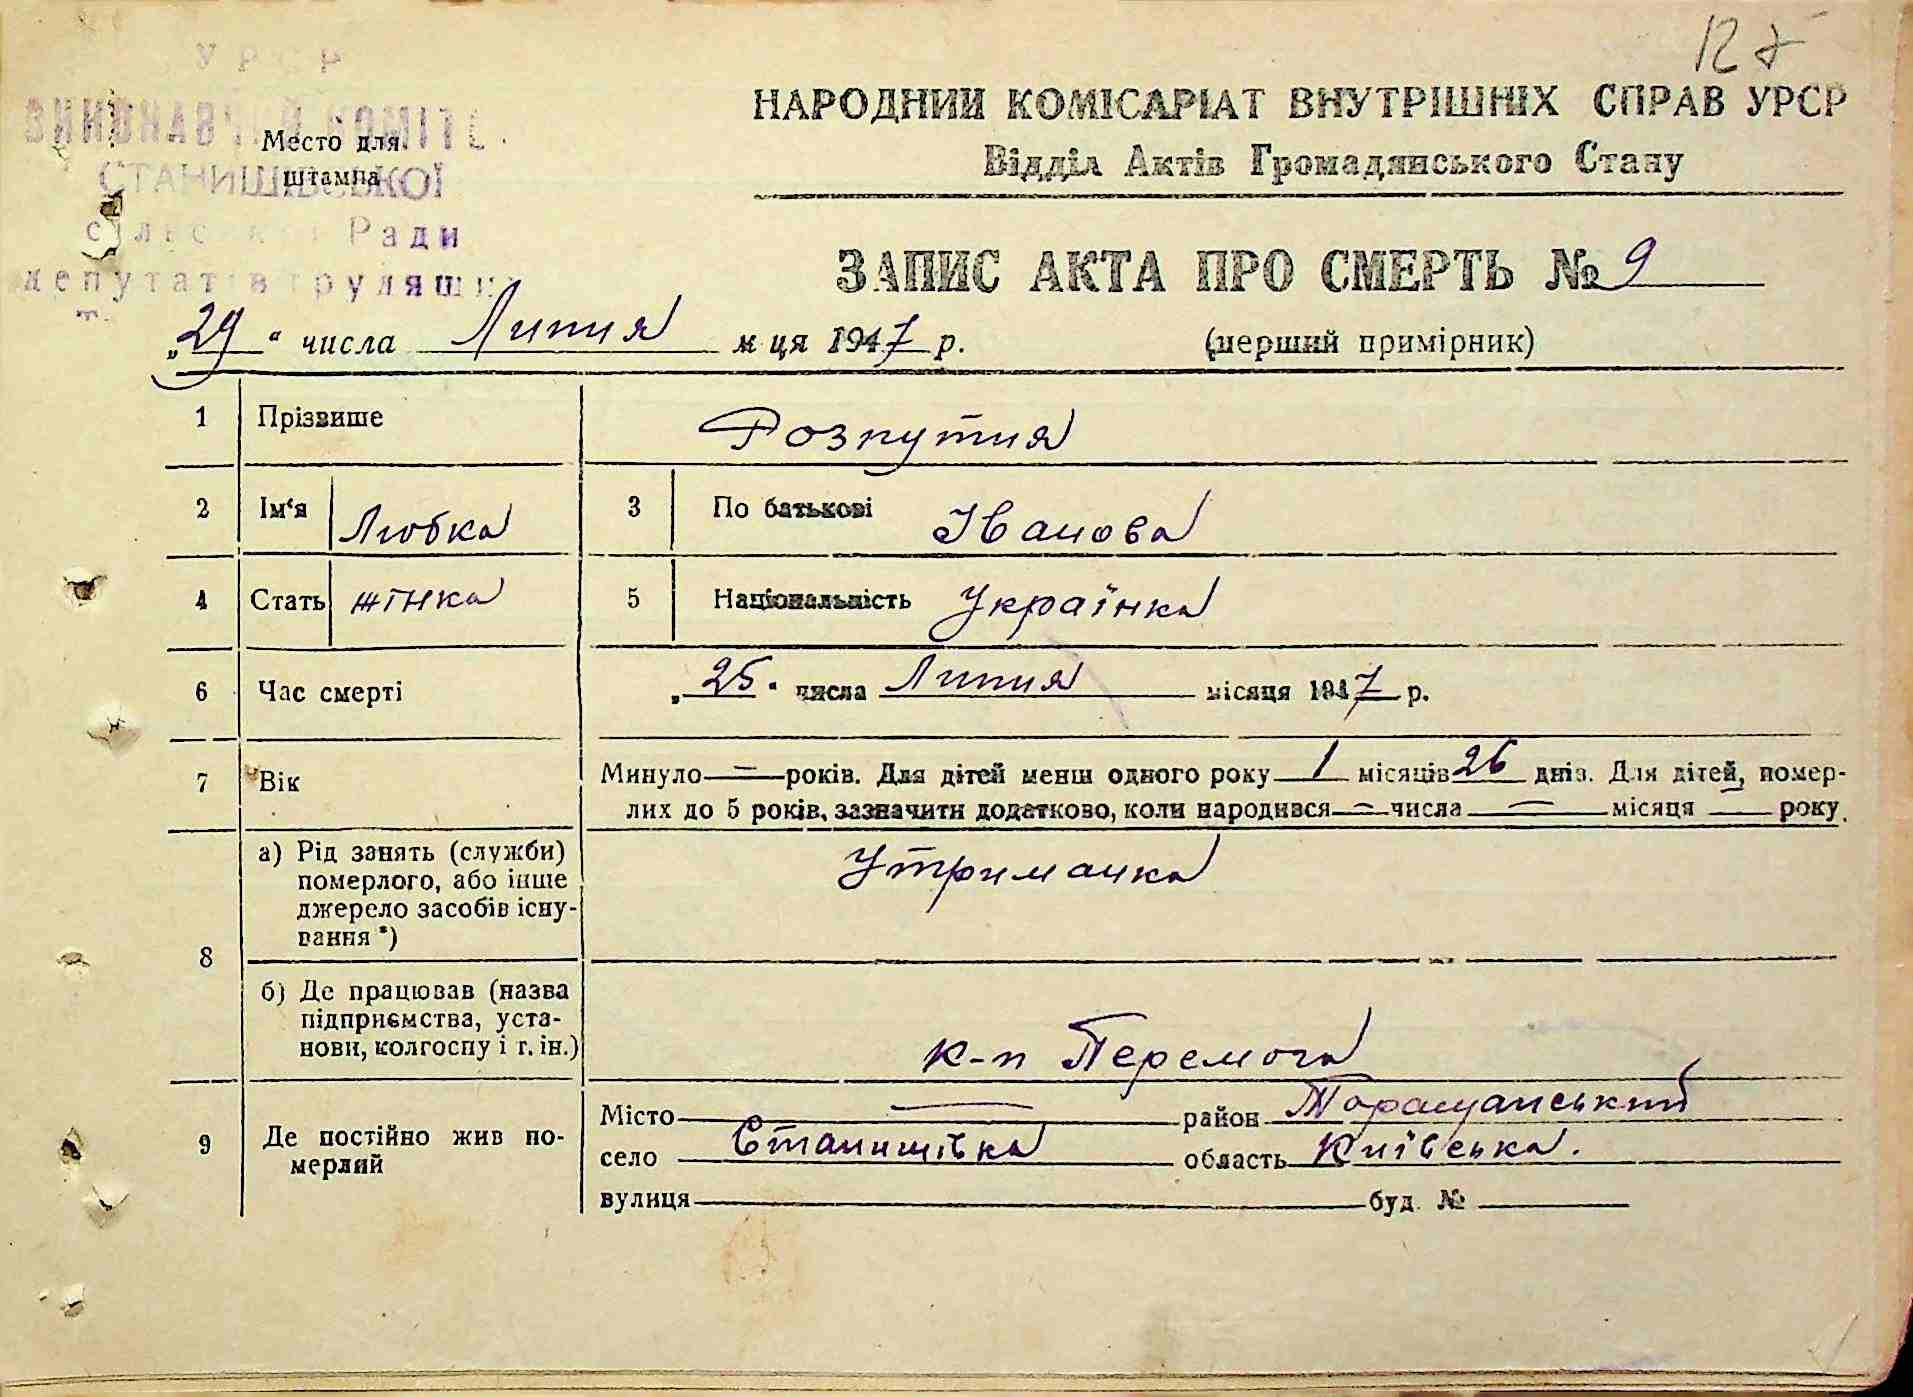 УРСР
ВИКОНАВЧИЙ КОМІТЕТ
СТАНИШІВСЬКОЇ
сільської Ради
депутатів трудящих
Место для
штампа
127
НАРОДНИЙ КОМІСАРІАТ ВНУТРІШНІХ СПРАВ УРСР
Відділ Актів Громадянського Стану
ЗАПИС АКТА ПРО СМЕРТЬ № 9
„29“ числа Липня м-ця 1947 р. (перший примірник)
1 Прізвище Розпутня
2 Ім‘я Любка 3 По батькові Іванова
4 Стать жінка 5 Національність Українка
6 Час смерті „25“ числа Липня місяця 1947 р.
7 Вік Минуло — років. Для дітей менш одного року 1 місяців 26 днів. Для дітей, помер-
лих до 5 років, зазначити додатково, коли народився — числа — місяця — року.
8 а) Рід занять (служби)
померлого, або інше
джерело засобів існу-
вання *) Утриманка
б) Де працював (назва
підприємства, уста-
нови, колгоспу і т. ін.) к-п Перемога
9 Де постійно жив по-
мерлий
Місто — район Таращанський
село Станишівка область Київська.
вулиця буд. №